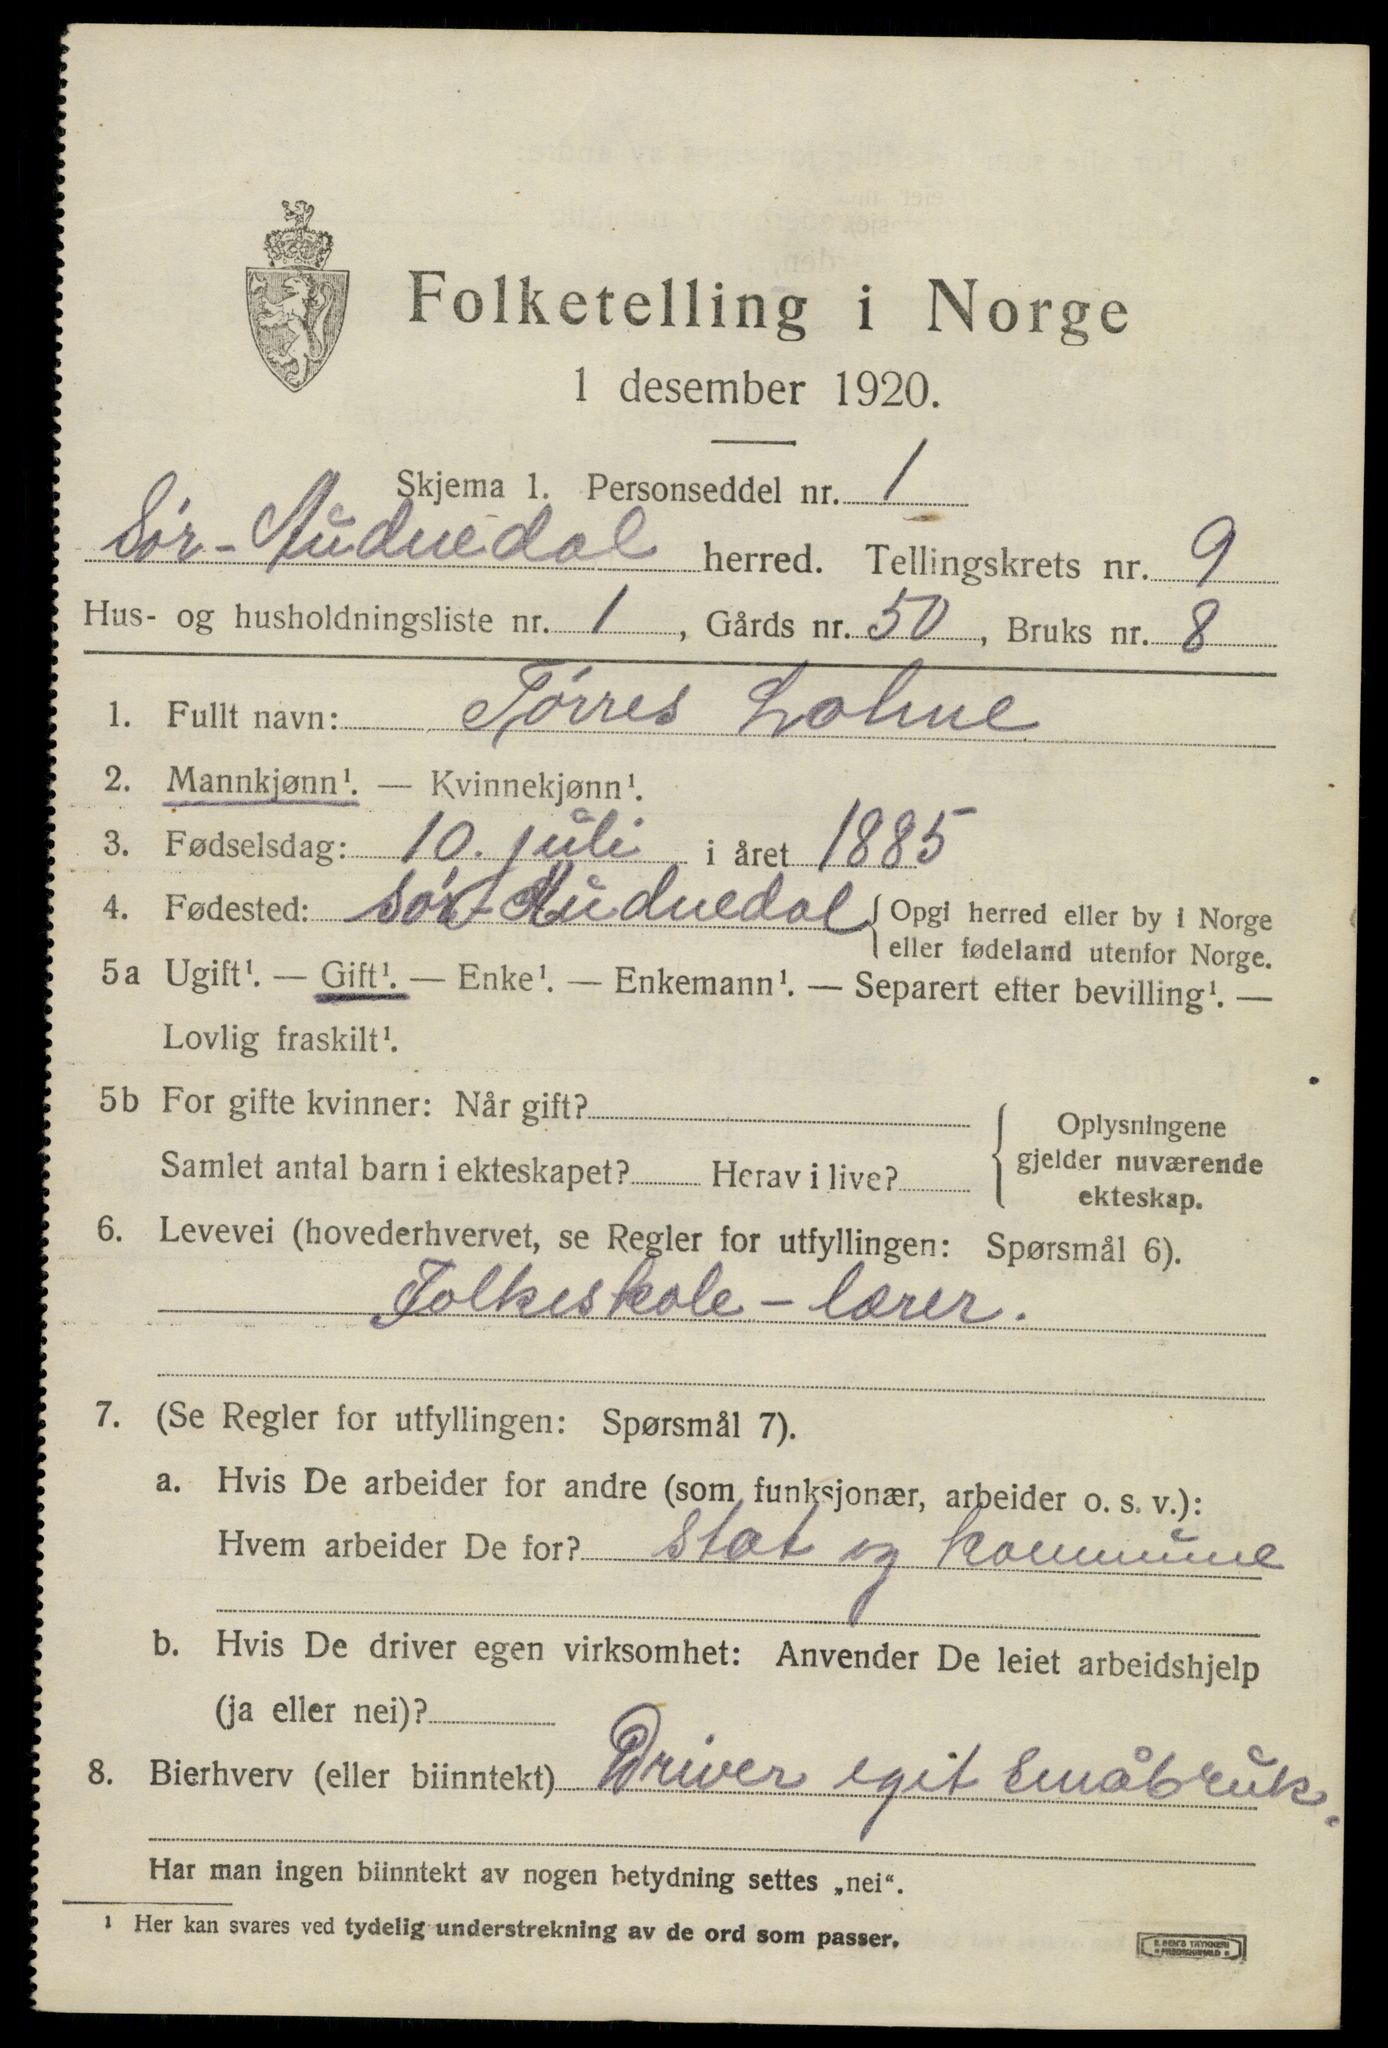 Folketelling i Norge
1 desember 1920.
Skjema 1. Personseddel nr. 1
Sør-Audnedal herred. Tellingskrets nr. 9
Hus- og husholdningsliste nr. 1, Gårds nr. 50, Bruks nr. 8
1. Fullt navn: Tørres Lohne
2. Mannkjønn¹. — Kvinnekjønn¹.
3. Fødselsdag: 10. juli i året 1885
4. Fødested: Sør-Audnedal { Opgi herred eller by i Norge
eller fødeland utenfor Norge.
5a Ugift¹. — Gift¹. — Enke¹. — Enkemann¹. — Separert efter bevilling¹. —
Lovlig fraskilt¹.
5b For gifte kvinner: Når gift?
Samlet antal barn i ekteskapet? Herav i live?
{ Oplysningene
gjelder nuværende
ekteskap.
6. Levevei (hovederhvervet, se Regler for utfyllingen: Spørsmål 6).
Folkeskole-lærer.
7. (Se Regler for utfyllingen: Spørsmål 7).
a. Hvis De arbeider for andre (som funksjonær, arbeider o. s. v.):
Hvem arbeider De for? Stat og kommune
b. Hvis De driver egen virksomhet: Anvender De leiet arbeidshjelp
(ja eller nei)?
8. Bierhverv (eller biinntekt) Driver eget småbruk.
Har man ingen biinntekt av nogen betydning settes „nei“.
¹ Her kan svares ved tydelig understrekning av de ord som passer.